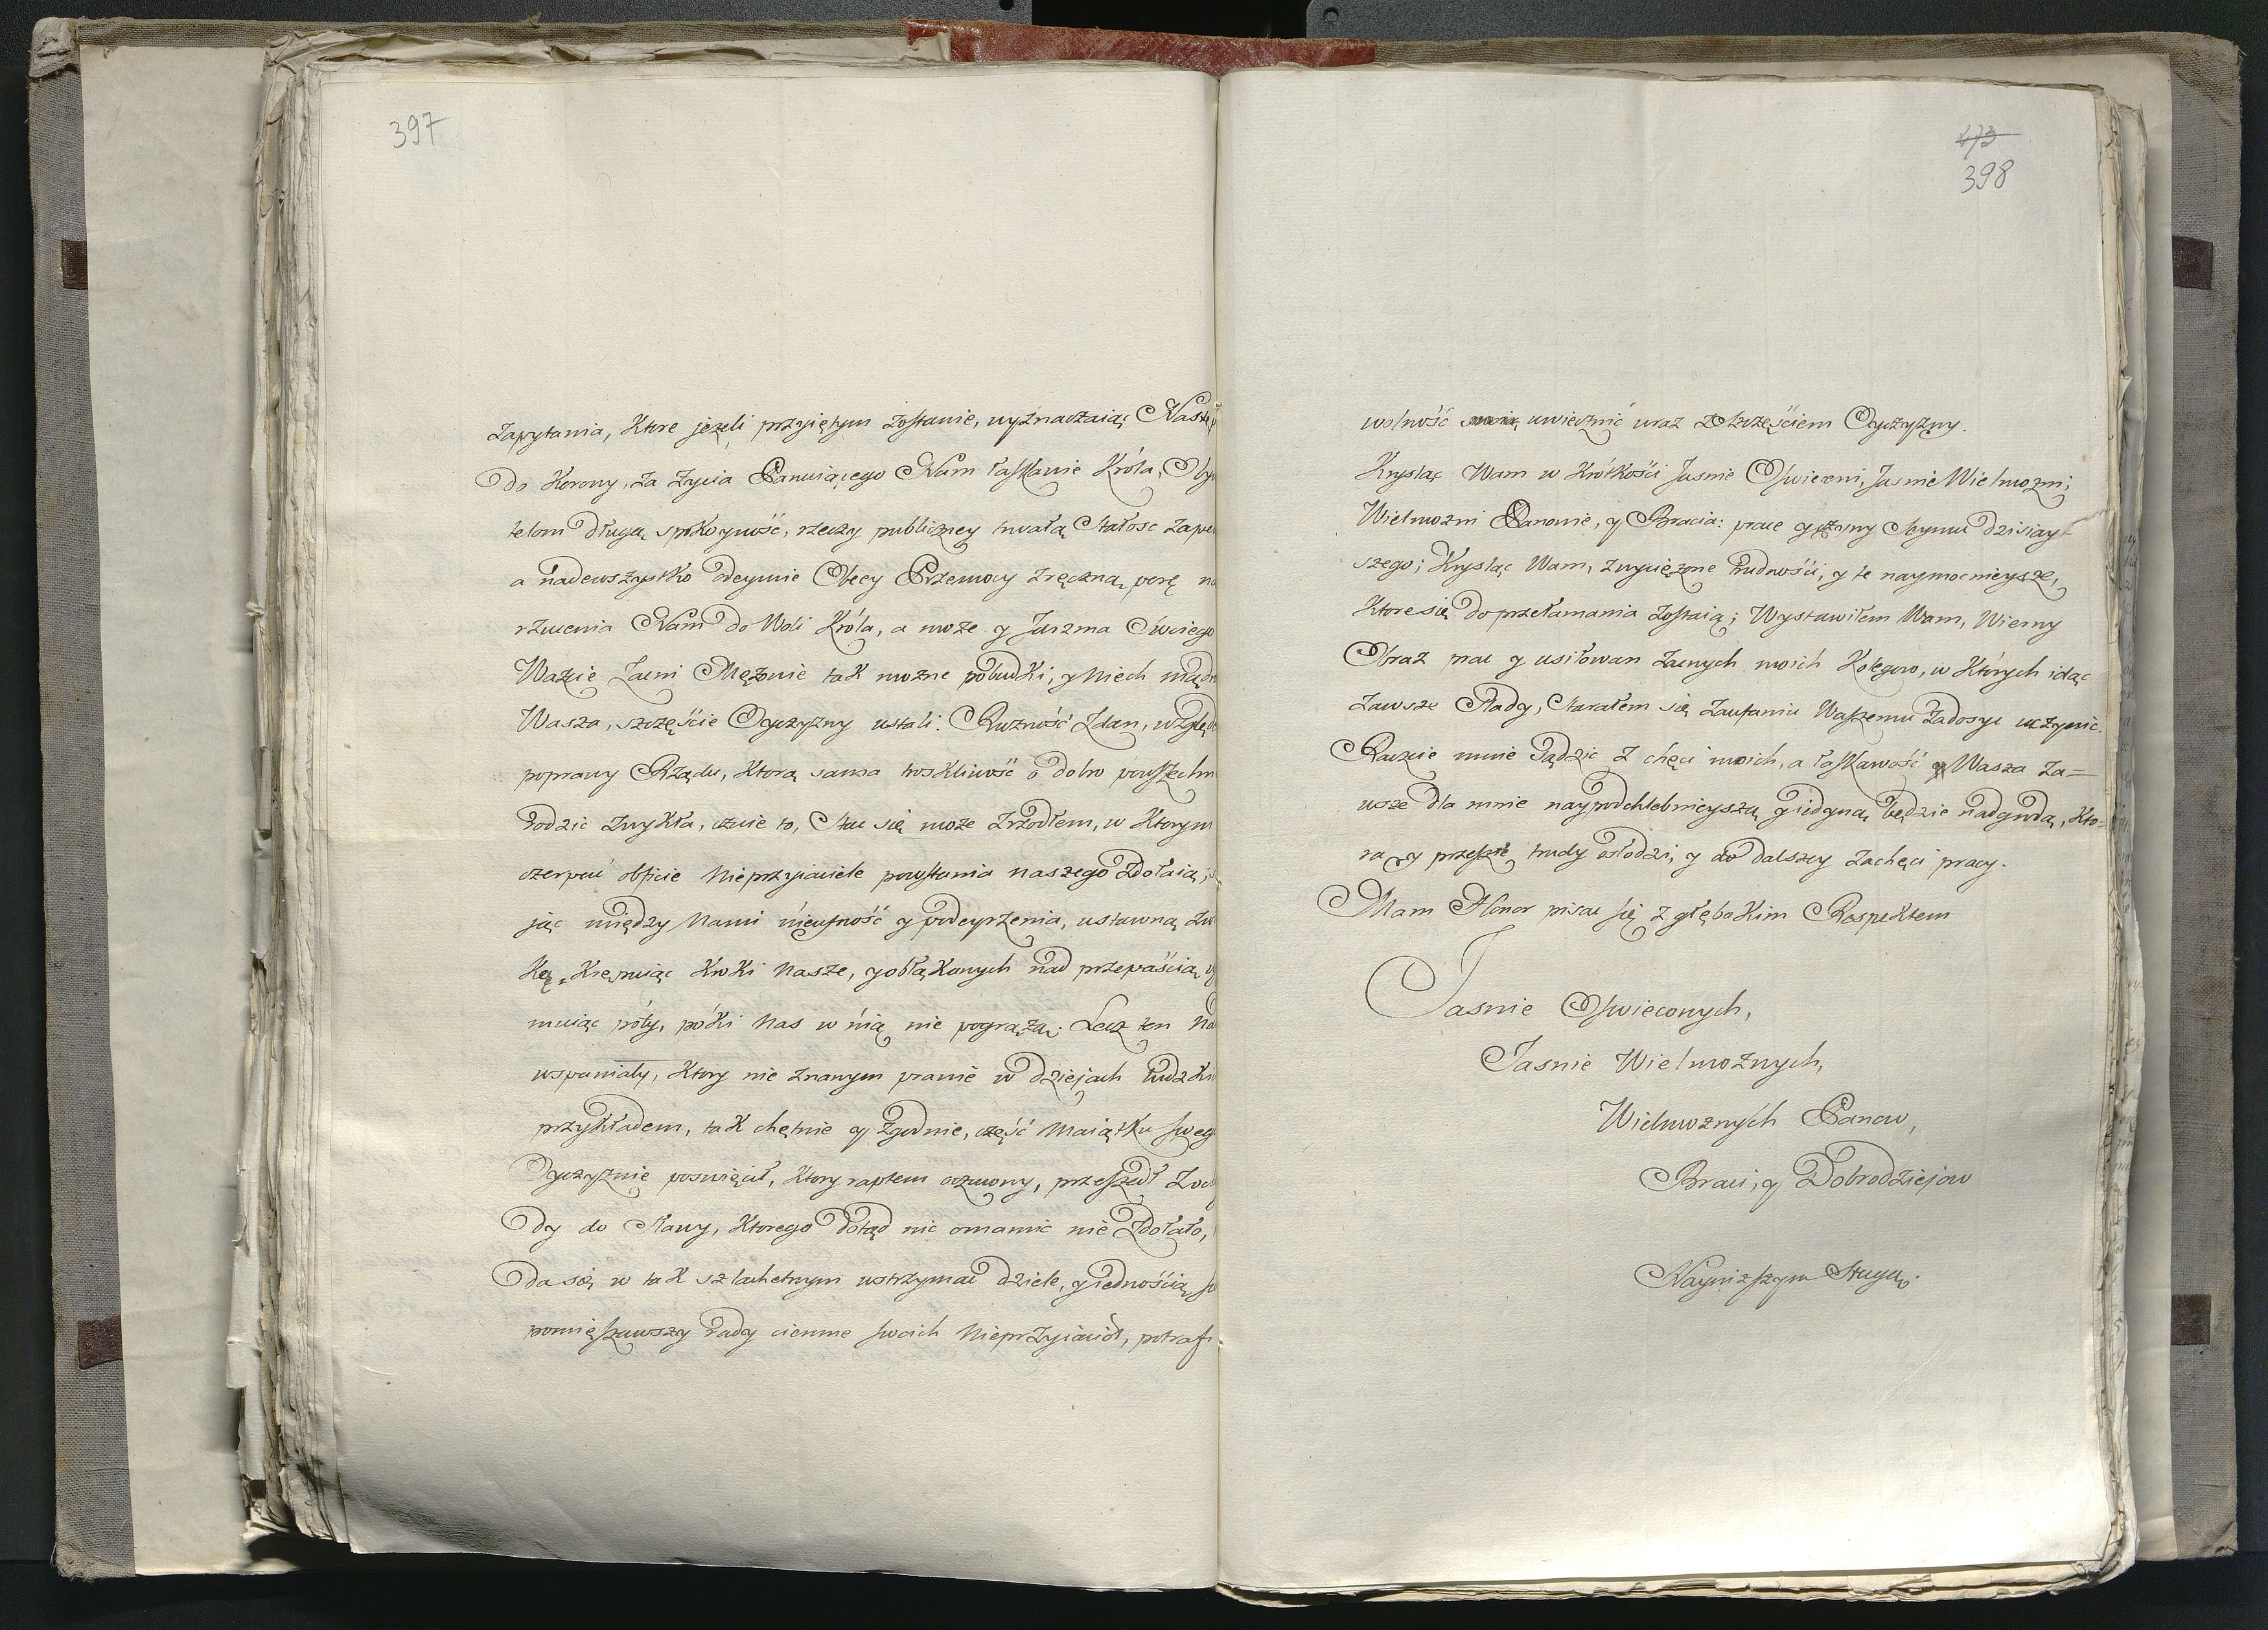 397
zapytania, Ktore jeżeli przyiętym zostanie, wyznaczaiąc Nastę
do Korony, za życia Panuiącego Nam łaskawie Króla, Oby
telom długą spokoyność, rzeczy publiczney trwałą stałosc zape
a nadewszystko odeymie Obcey Przemocy zręczną porę na
rzucenia Nam do Woli Króla, a może y Jarzma swiego
Ważcie Zacni Mężowie tak możne pobudki, y niech mąd
Wasza, szczęście Oyczyzny ustali. Rużność zdan, wzglę
poprawy Rządu, Ktorą sama troskliwość o dobro powszechn
rodzic zwykła, czucie to, stac się może zrzodłem, w Ktorym
czerpać obficie Nieprzyiaciele powstania naszego zdołaią,
jąc między Nami nieufność y podeyrzenia, ustawną zw
Kę, Krępuiąc Kroki Nasze, y obłąkanych nad przepaścią
muiąc póty, póki Nas w nią nie pogrążą. Lecz ten Na
wspaniały, Ktory nie znanym prawie w dziejach ludzki
przykładem, tak chętnie y zgodnie, część Maiątku sweg
Oyczyznie poswięcił, Ktory raptem ocucony, przeszedł z
dy do sławy, Ktorego dotąd nic omamic nie zdołało,
da się w tak szlachetnym wstrzymac dziele, y iednością
pomięszawszy rady ciemne swoich Nieprzyiacioł, potrafi
673
398
wolność swoią uwiecznić wraz z szczęściem Oyczyzny.
Krysląc Wam w Krótkości Jasnie Oswieceni, Jasnie Wielmozni,
Wielmozni Panowie, y Bracia: prace y czyny Seymu dzisiay-
szego; Krysląc Wam, zwyciężone trudności, y te naymocnieysze,
Ktore się do przełamania zostaią; Wystawiłem Wam, Wierny
Obraz prac y usiłowan zacnych moich Kolegow, w Których idąc
zawsze slady, starałem się zaufaniu Waszemu zadosyc uczynic.
Raczcie mnie sądzic z chęci moich, a łaskawość Wasza za=
wsze dla mnie naypodchlebnieyszą y iedyną będzie nadgrodą, Kto=
ra y przeszłe trudy osłodzi, y do dalszey zachęci pracy.
Mam Honor pisac się z głębokim Respektem
Jasnie Oswieconych,
Jasnie Wielmożnych,
Wielmoznych Panow,
Braci, y Dobrodziejow
Nayniższym Sługą.